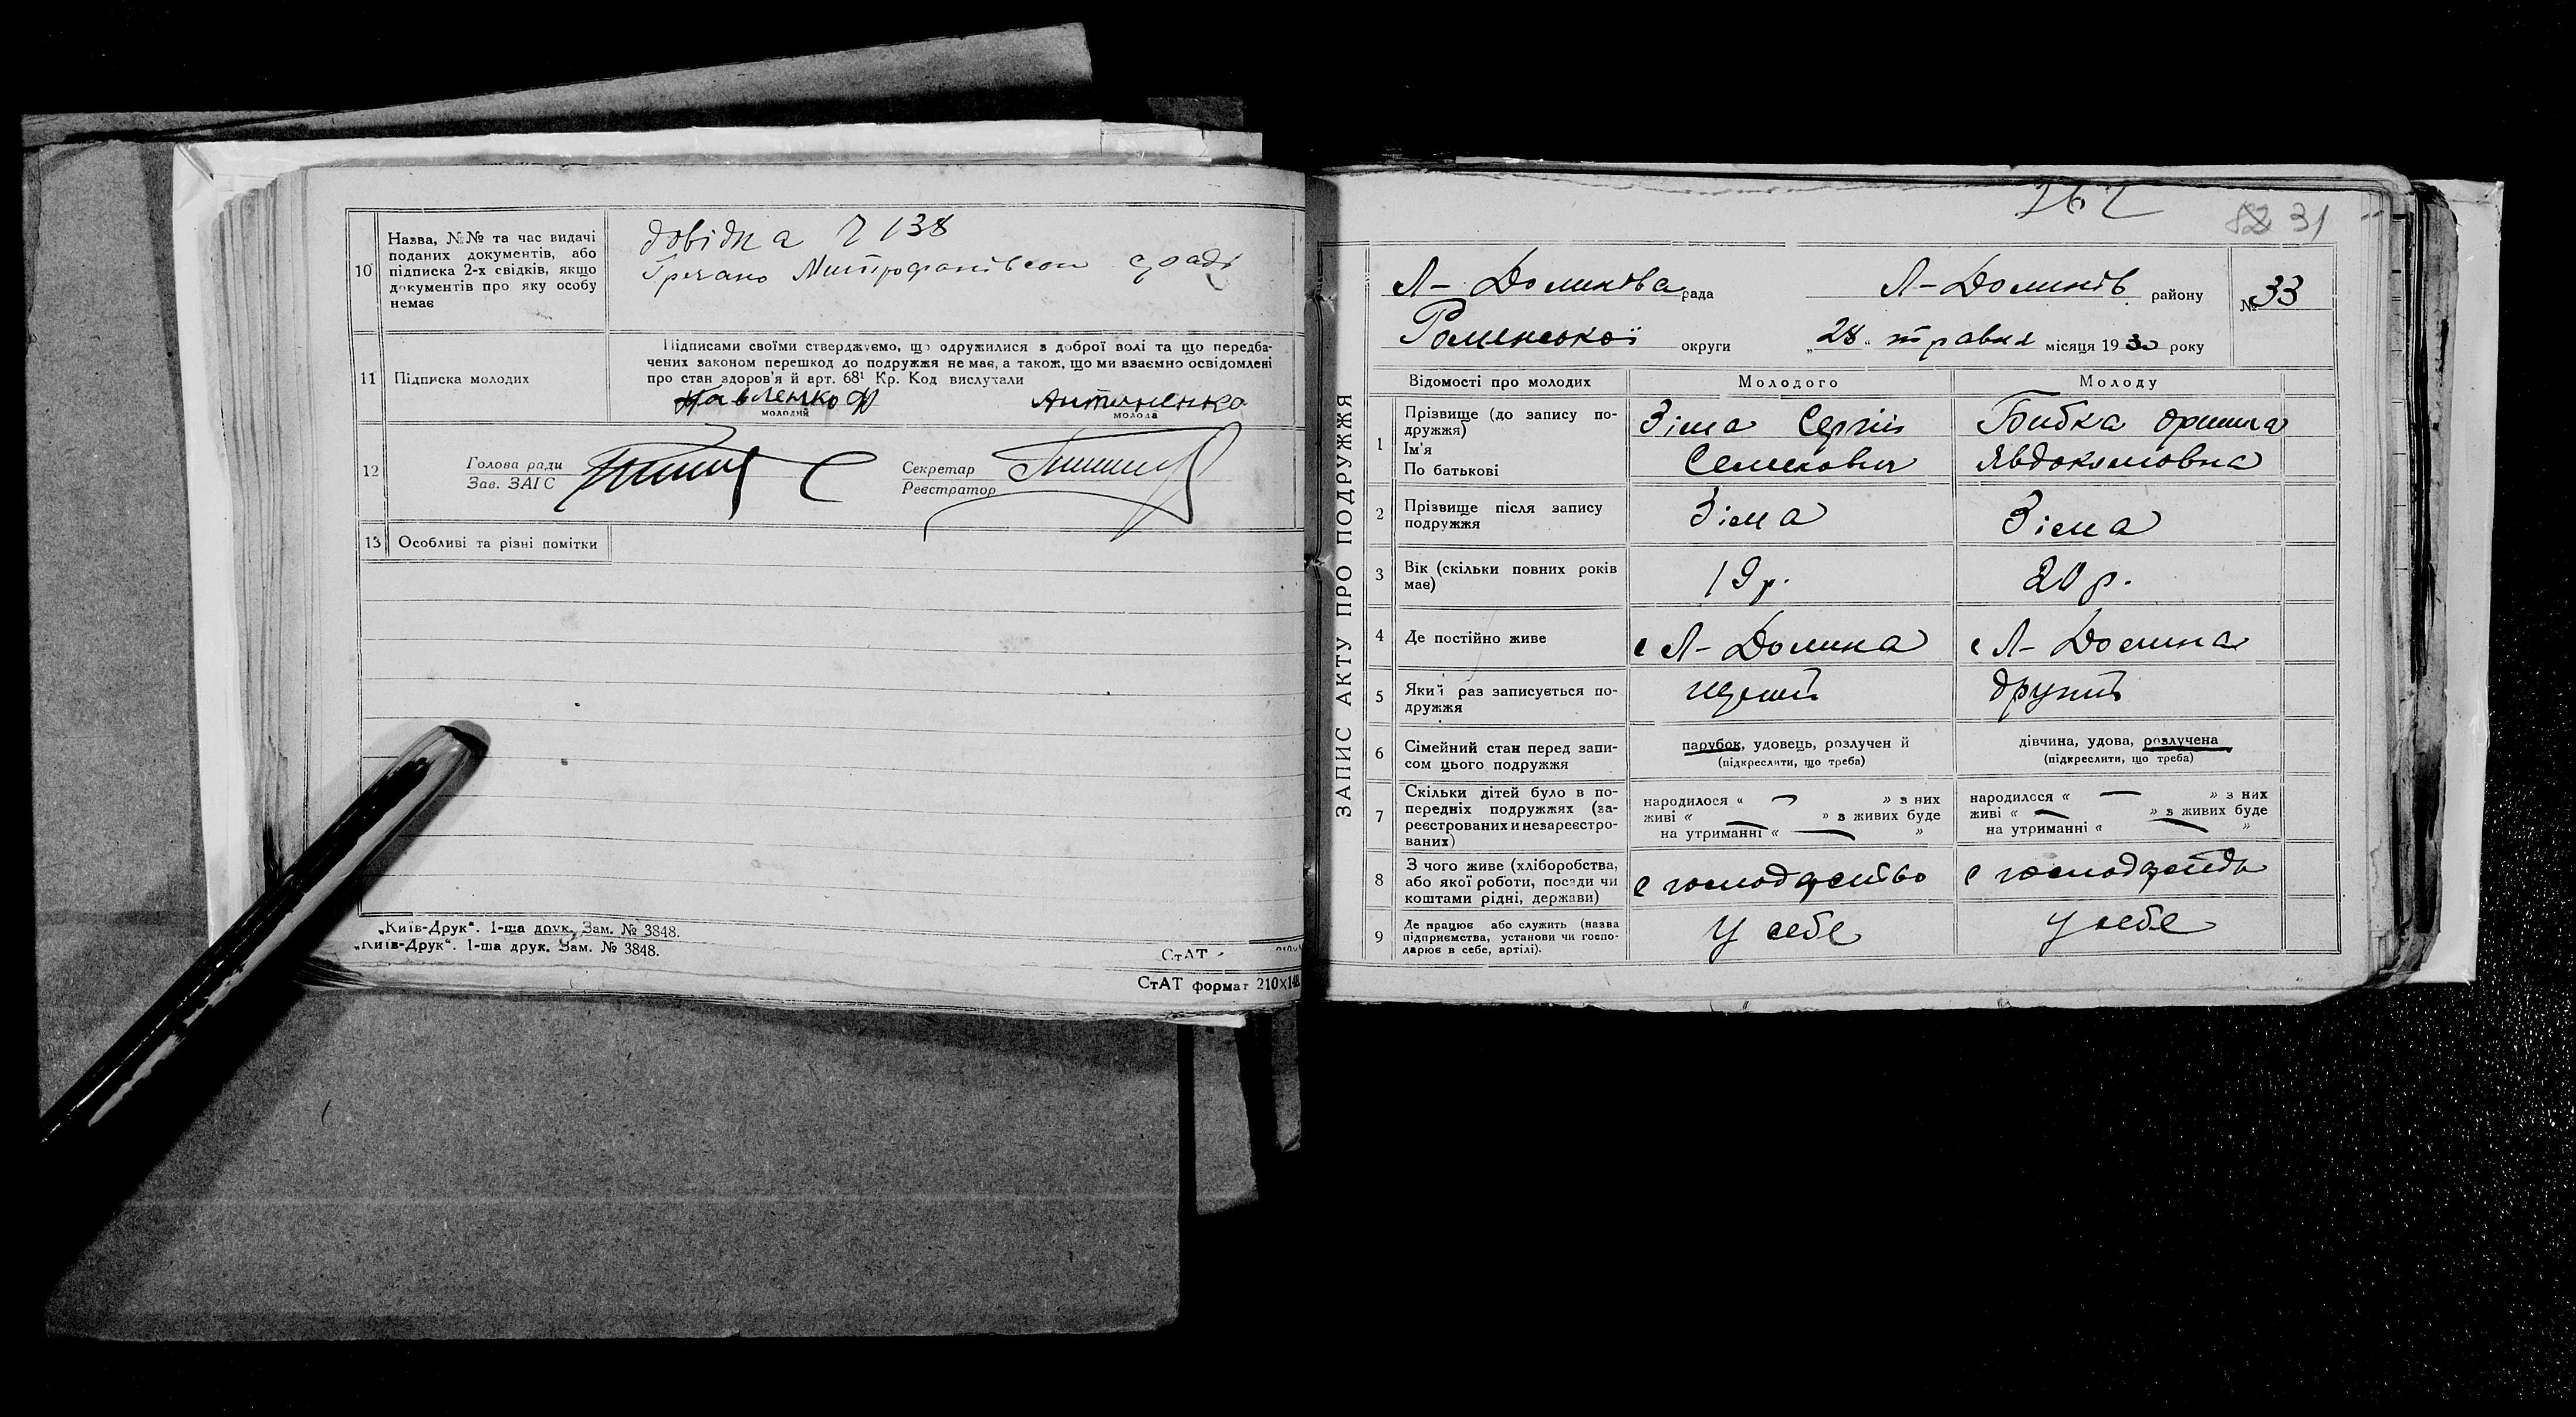 10
Назва, №№ та час видачі
поданих документів, або
підписка 2-х свідків, якщо
документів про яку особу
немає
довідка 138
Гречано Митрофанівсои с/раді
11
Підписка молодих
Підписами своїми стверджуємо, що одружилися з доброї волі та що передба-
чених законом перешкод до подружжя немає, а також, що ми взаємно освідомлені
про стан здоров'я й арт. 68¹ Кр. Код вислухали
Павленко Ф Антоненко
молодий молода
12
Голова ради
Зав. ЗАГС
Секретар
Реєстратор
13
Особливі та різні помітки
„Київ-Друк“. 1-ша друк. Зам. № 3848.
„Київ-Друк“. 1-ша друк. Зам. № 3848.
СтАТ
СтАТ формат 210×148
31
ЗАПИС АКТУ ПРО ПОДРУЖЖЯ
Л-Долинська рада Л-Долинсь району № 33
Роменської округи „28“ травня місяця 1930 року
Відомості про молодих Молодого Молоду
1
Прізвище (до запису по-
дружжя)
Ім'я
По батькові
Зіма Сергій
Семенович
Бибка Оришка
Явдокимовна
2
Прізвище після запису
подружжя
Зіма Зіма
3
Вік (скільки повних років
має)
19 р. 20 р.
4
Де постійно живе
с Л-Долина с Л-Долина
5
Який раз записується по-
дружжя
перший другий
6
Сімейний стан перед запи-
сом цього подружжя
парубок, удовець, розлучений
(підкреслити, що треба)
дівчина, удова, розлучена
(підкреслити, що треба)
7
Скільки дітей було в по-
передніх подружжях (за-
реєстрованих и незареєстро-
ваних)
народилося « — » з них
живі « — » з живих буде
на утриманні « — »
народилося « — » з них
живі « — » з живих буде
на утриманні « — »
8
З чого живе (хліборобства,
або якої роботи, посади чи
коштами рідні, держави)
с господарство с господарств
9
Де працює або служить (назва
підприємства, установи чи госпо-
дарює в себе, артілі).
У себе у себе